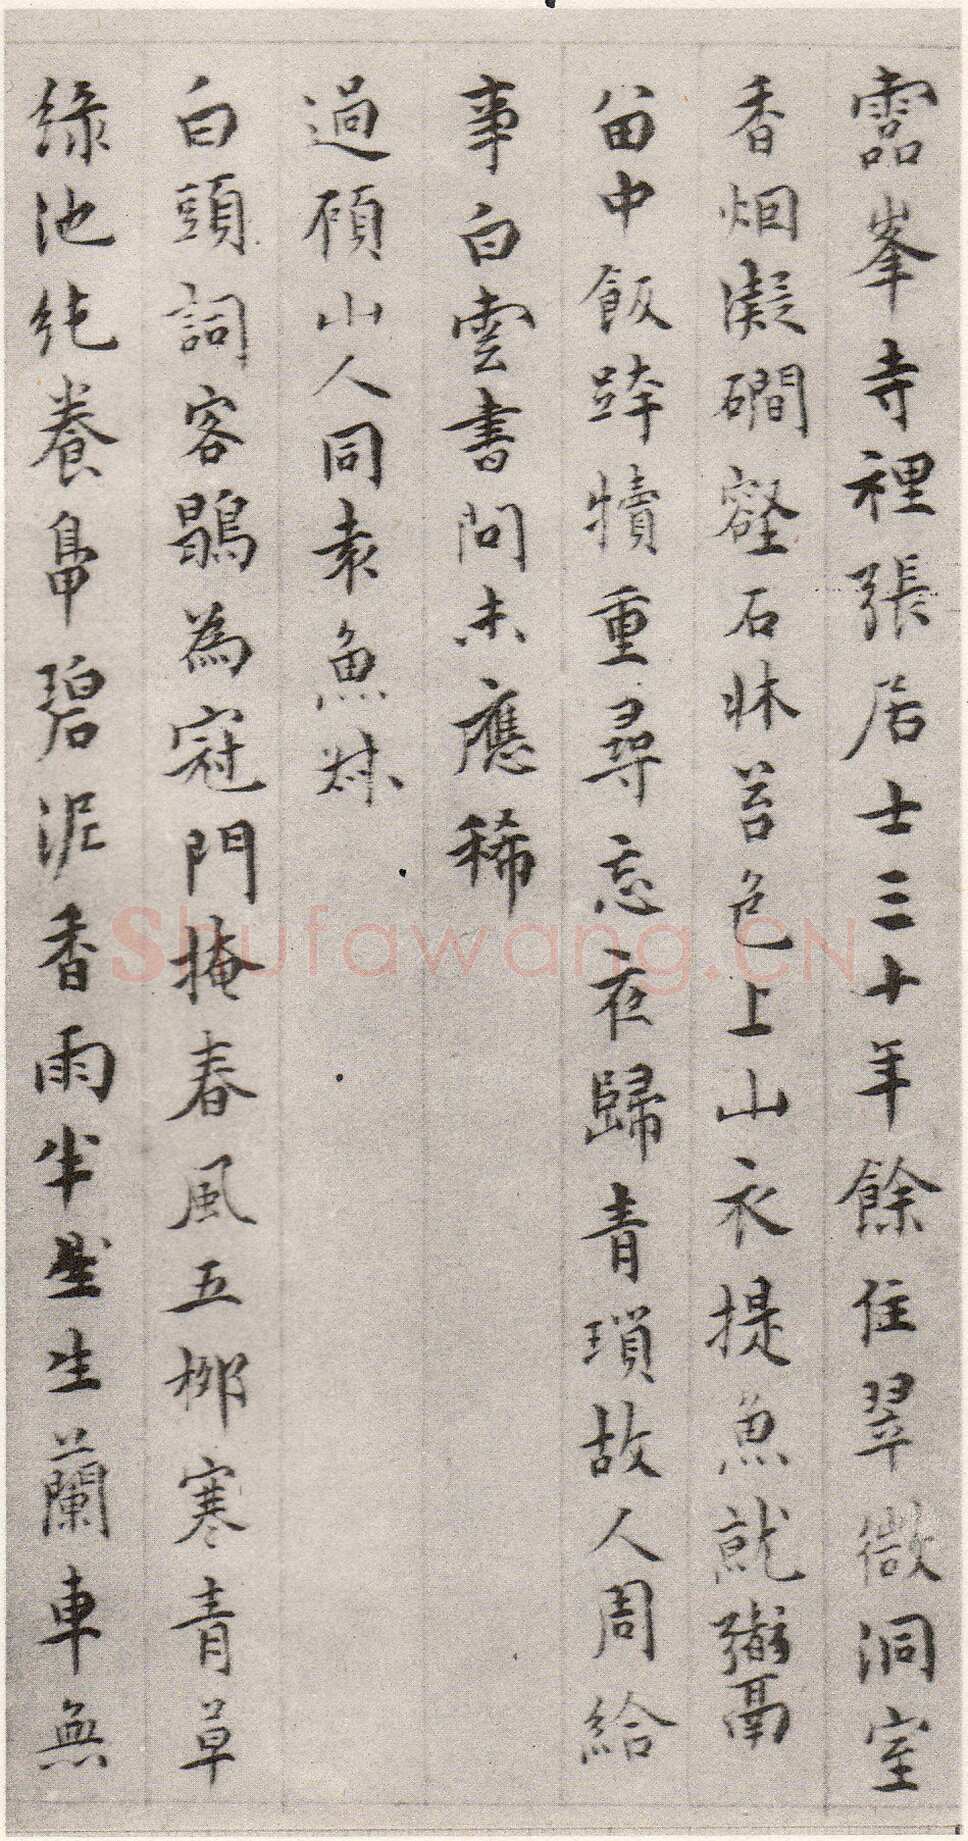 靈峯寺裡張居士三十年餘住翠微洞室
香烟凝磵壑石牀苔色上山衣提魚就鬻
畲中飯跨犢重尋忘夜歸青瑣故人周給
事白雲書問未應稀
過碩山人同袁魚
白頭詞客鶡為冠門掩春風五柳寒青草
綠池純養碧泥香雨半星生蘭車無
Shufawang.CN